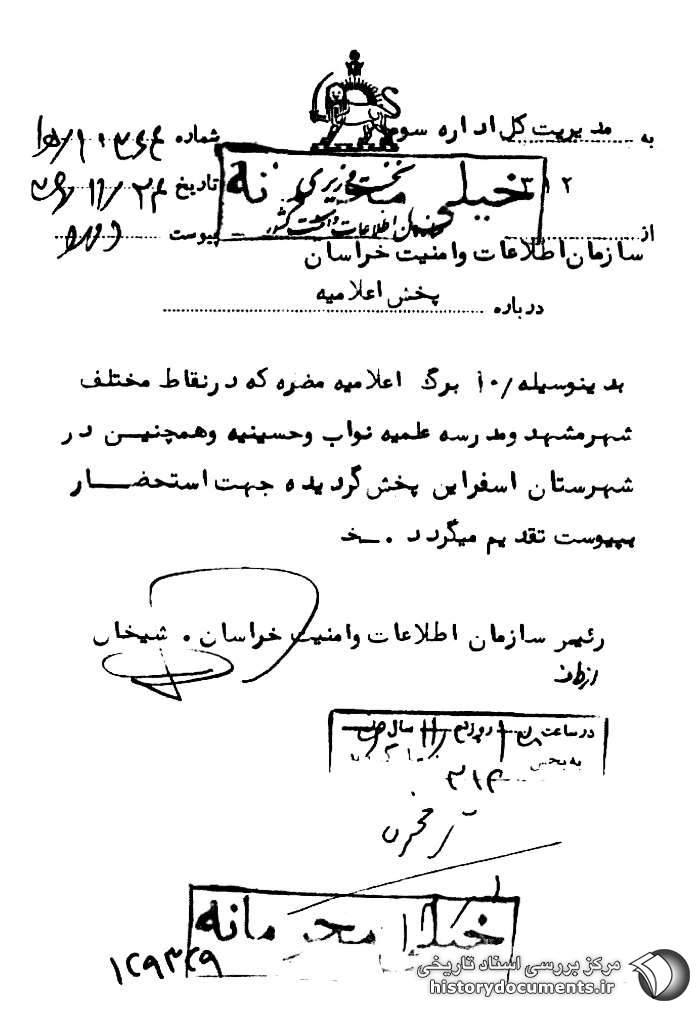 به مدیریت کل اداره سوم
۳۱۲
شماره
خیلی محرمانه
نخست وزیری
سازمان اطلاعات و امنیت کشور
تاریخ ۲۴ / ۱۱ /
از
سازمان اطلاعات وامنیت خراسان
پیوست
درباره پخش اعلامیه
بدینوسیله /۱۰ برگ اعلامیه مضره که درنقاط مختلف
شهرمشهد ومدرسه علمیه نواب وحسینیه وهمچنیـن در
شهرستان اسفراین پخش گردیده جهت استحضـــار
بپیوست تقدیم میگردد . ـخ
رئیس سازمان اطلاعات وامنیت خراسان . شیخان
از طرف
در ساعت روز سال
به بخش
۳۱۴
خیلی محرمانه
۱۲۹۳۲۹
مرکز بررسی اسناد تاریخی
historydocuments.ir